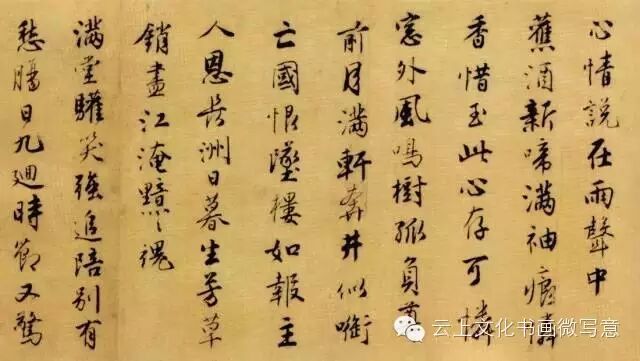 心情說在雨聲中
舊酒新啼滿袖痕憐
香惜玉此心存可憐
窓外風鳴樹孤負尊
前月滿軒奔井似啣
亡國恨墜樓如報主
人恩長洲日暮生芳草
銷盡江淹黯々魂
滿堂驩笑強追陪別有
愁腸日九迴時節又驚
云上文化书画微写意